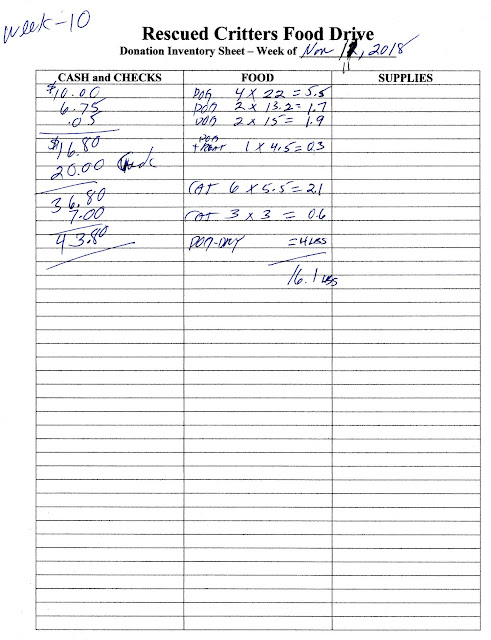 Week-10
Rescued Critters Food Drive
Donation Inventory Sheet – Week of Nov 11, 2018
CASH and CHECKS FOOD SUPPLIES
$10.00 DOG 4 X 22 = 5.5
6.75 DOG 2 X 13.2 = 1.7
.05 DOG 2 X 15 = 1.9
$16.80 DOG TREAT 1 X 4.5 = 0.3
20.00
36.80 CAT 6 X 5.5 = 2.1
7.00 CAT 3 X 3 = 0.6
43.80 DOG-DRY = 4 LBS
16.1 LBS